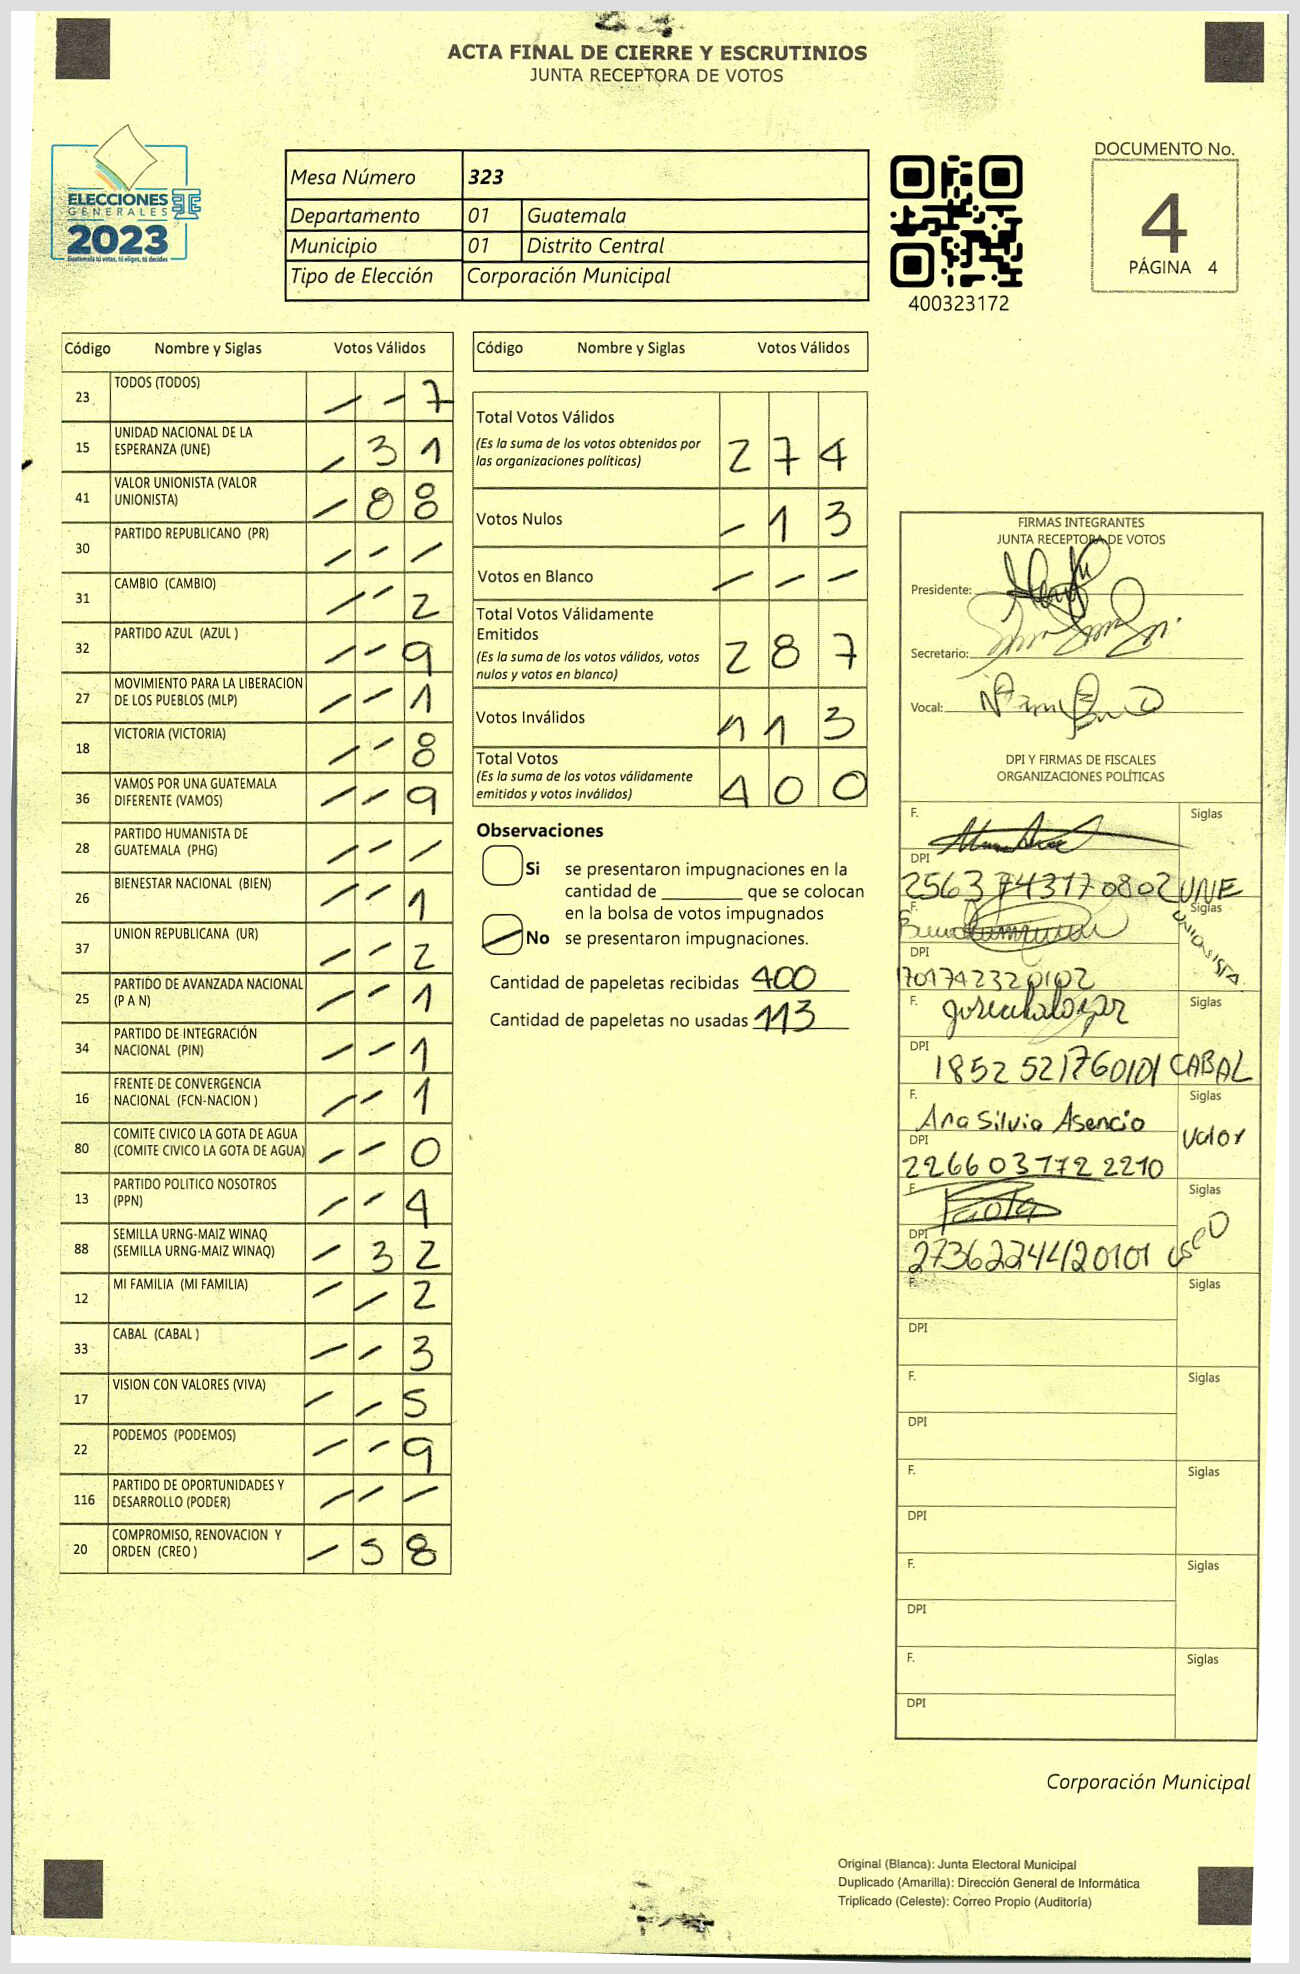 ACTA FINAL DE CIERRE Y ESCRUTINIOS
JUNTA RECEPTORA DE VOTOS
ELECCIONES
GENERALES
2023
Guatemala tú votas, tú eliges, tú decides
Mesa Número 323
Departamento 01 Guatemala
Municipio 01 Distrito Central
Tipo de Elección Corporación Municipal
400323172
DOCUMENTO No.
4
PÁGINA 4
Código Nombre y Siglas Votos Válidos
23 TODOS (TODOS) - - 7
15 UNIDAD NACIONAL DE LA ESPERANZA (UNE) - 3 1
41 VALOR UNIONISTA (VALOR UNIONISTA) - 8 8
30 PARTIDO REPUBLICANO (PR) - - -
31 CAMBIO (CAMBIO) - - 2
32 PARTIDO AZUL (AZUL ) - - 9
27 MOVIMIENTO PARA LA LIBERACION DE LOS PUEBLOS (MLP) - - 1
18 VICTORIA (VICTORIA) - - 8
36 VAMOS POR UNA GUATEMALA DIFERENTE (VAMOS) - - 9
28 PARTIDO HUMANISTA DE GUATEMALA (PHG) - - -
26 BIENESTAR NACIONAL (BIEN) - - 1
37 UNION REPUBLICANA (UR) - - 2
25 PARTIDO DE AVANZADA NACIONAL (P A N) - - 1
34 PARTIDO DE INTEGRACIÓN NACIONAL (PIN) - - 1
16 FRENTE DE CONVERGENCIA NACIONAL (FCN-NACION ) - - 1
80 COMITE CIVICO LA GOTA DE AGUA (COMITE CIVICO LA GOTA DE AGUA) - - 0
13 PARTIDO POLITICO NOSOTROS (PPN) - - 4
88 SEMILLA URNG-MAIZ WINAQ (SEMILLA URNG-MAIZ WINAQ) - 3 2
12 MI FAMILIA (MI FAMILIA) - - 2
33 CABAL (CABAL ) - - 3
17 VISION CON VALORES (VIVA) - - 5
22 PODEMOS (PODEMOS) - - 9
116 PARTIDO DE OPORTUNIDADES Y DESARROLLO (PODER) - - -
20 COMPROMISO, RENOVACION Y ORDEN (CREO ) - 5 8
Código Nombre y Siglas Votos Válidos
Total Votos Válidos 2 7 4
(Es la suma de los votos obtenidos por
las organizaciones políticas)
Votos Nulos - 1 3
Votos en Blanco - - -
Total Votos Válidamente
Emitidos 2 8 7
(Es la suma de los votos válidos, votos
nulos y votos en blanco)
Votos Inválidos 1 1 3
Total Votos 4 0 0
(Es la suma de los votos válidamente
emitidos y votos inválidos)
Observaciones
Si se presentaron impugnaciones en la
cantidad de ________ que se colocan
en la bolsa de votos impugnados
No se presentaron impugnaciones.
Cantidad de papeletas recibidas 400
Cantidad de papeletas no usadas 113
FIRMAS INTEGRANTES
JUNTA RECEPTORA DE VOTOS
Presidente:
Secretario:
Vocal:
DPI Y FIRMAS DE FISCALES
ORGANIZACIONES POLÍTICAS
F. Siglas
DPI
2563 74317 0802 UNE
F. Siglas
UNIONISTA
DPI
170174232 0102
F. Siglas
DPI
1852 52176 0101 CABAL
F. Siglas
Ana Silvia Asencio
Valor
DPI
2266 03772 2210
F. Siglas
DPI
2736224420101
F. Siglas
DPI
F. Siglas
DPI
F. Siglas
DPI
F. Siglas
DPI
F. Siglas
DPI
Corporación Municipal
Original (Blanca): Junta Electoral Municipal
Duplicado (Amarilla): Dirección General de Informática
Triplicado (Celeste): Correo Propio (Auditoría)